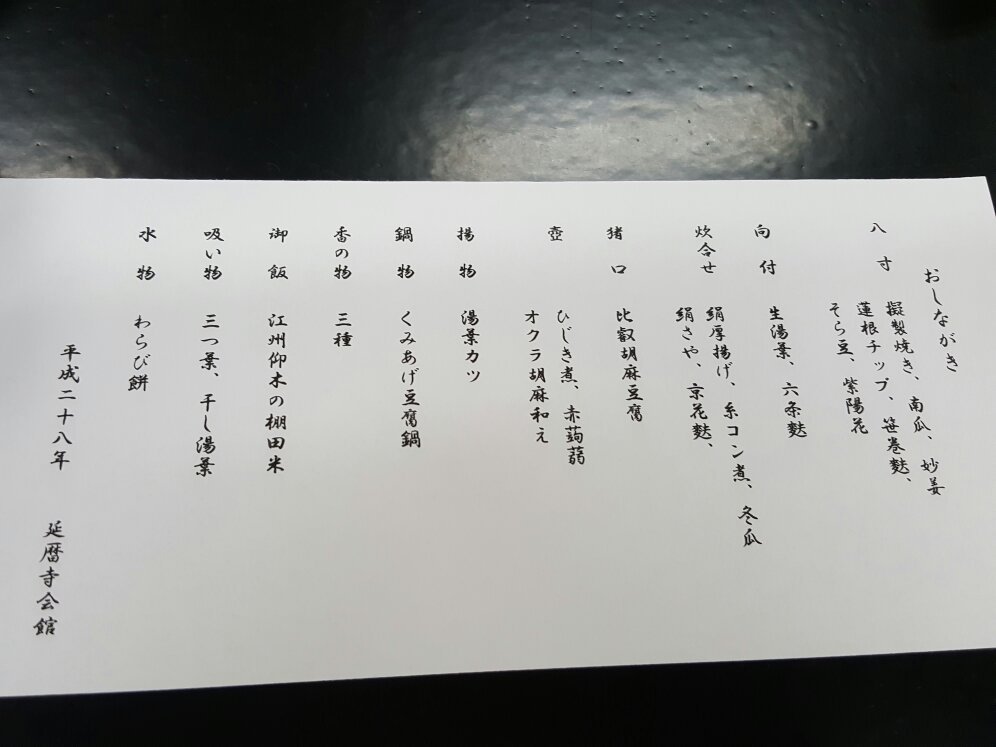 おしながき
八寸 擬製焼き、南瓜、妙姜
蓮根チップ、笹巻麩、
そら豆、紫陽花
向付 生湯葉、六条麩
炊合せ 絹厚揚げ、糸コン煮、冬瓜
絹さや、京花麩、
猪口 比叡胡麻豆腐
壺 ひじき煮、赤蒟蒻
オクラ胡麻和え
揚物 湯葉カツ
鍋物 くみあげ豆腐鍋
香の物 三種
御飯 江州仰木の棚田米
吸い物 三つ葉、干し湯葉
水物 わらび餅
平成二十八年 延暦寺会館